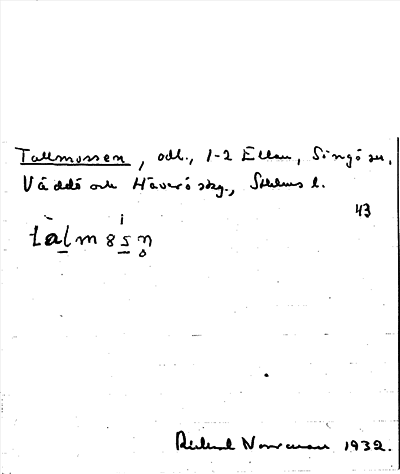 Tallmossen, odl., 1-2 Ellan, Singö sn,
Väddö och Häverö skg., Sthlms l.
43
tàlmꞵsn̥
Rickard Norrman 1932.